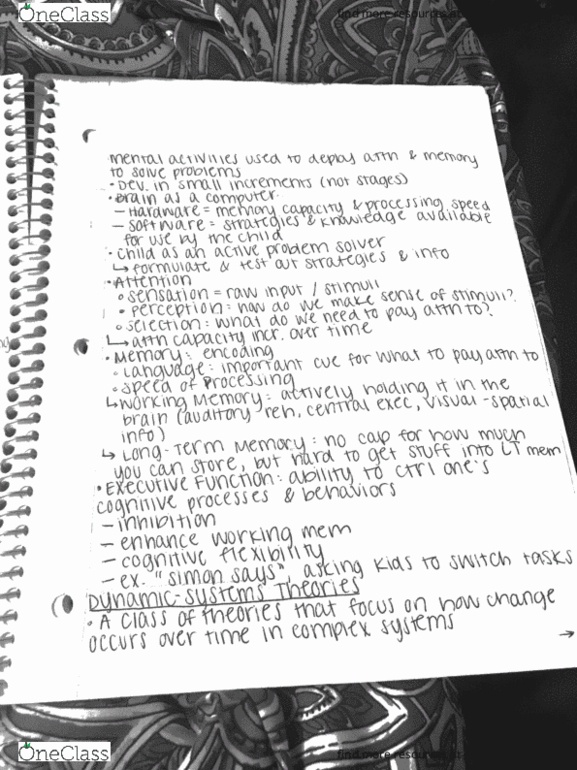 OneClass
find more resources at
mental activities used to deploy attn & memory
to solve problems
• Dev. in small increments (not stages)
• Brain as a computer
– Hardware = memory capacity & processing speed
– software = strategies & knowledge available
for use by the child
• child as an active problem solver
↳ formulate & test out strategies & info
• Attention
∘ sensation = raw input / stimuli
∘ perception: how do we make sense of stimuli?
∘ selection: what do we need to pay attn to?
↳ attn capacity incr. over time
• Memory: encoding
∘ Language: important cue for what to pay attn to
∘ speed of processing
↳ working memory: actively holding it in the
brain (auditory reh, central exec, visual-spatial
info)
↳ Long-Term Memory: no cap for how much
you can store, but hard to get stuff into LT mem
• EXECUTIVE FUNCTION: ability to ctrl one's
cognitive processes & behaviors
– inhibition
– enhance working mem
– cognitive flexibility
– ex. "simon says", asking kids to switch tasks
Dynamic-Systems Theories
• A class of theories that focus on how change
occurs over time in complex systems
→
OneClass
find more resources at